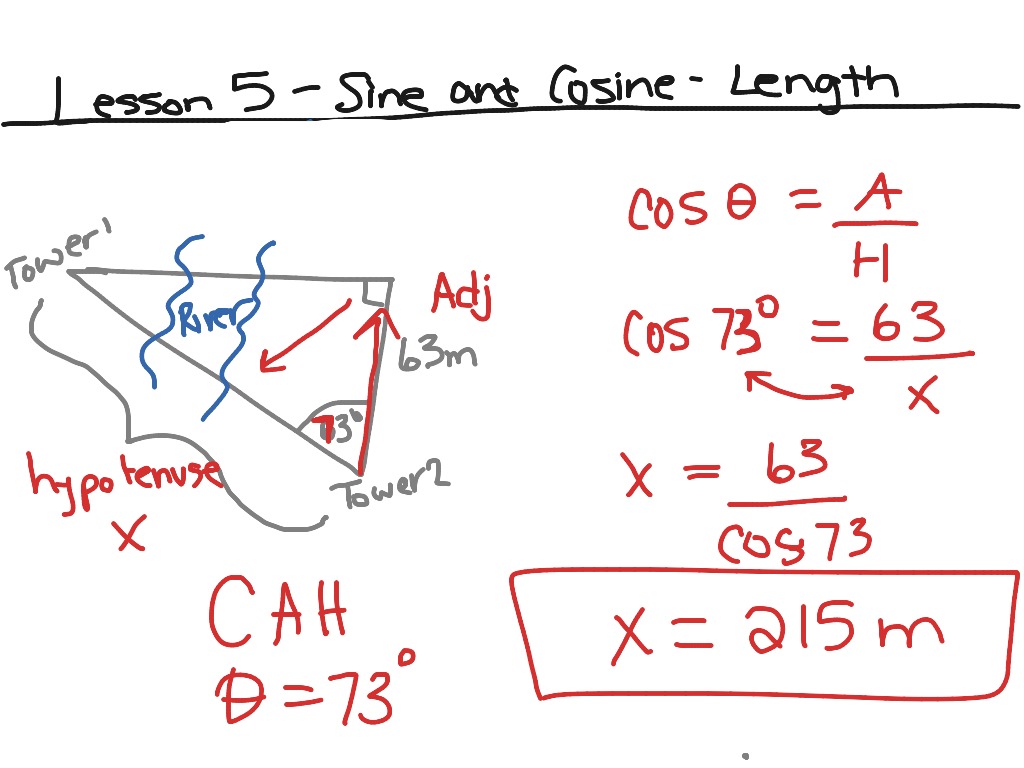 Lesson 5 - Sine and Cosine - Length
Tower 1
River
Adj
63m
73°
Tower 2
hypotenuse
x
CAH
θ = 73°
cos θ = A/H
cos 73° = 63/x
x = 63/cos 73
x = 215 m